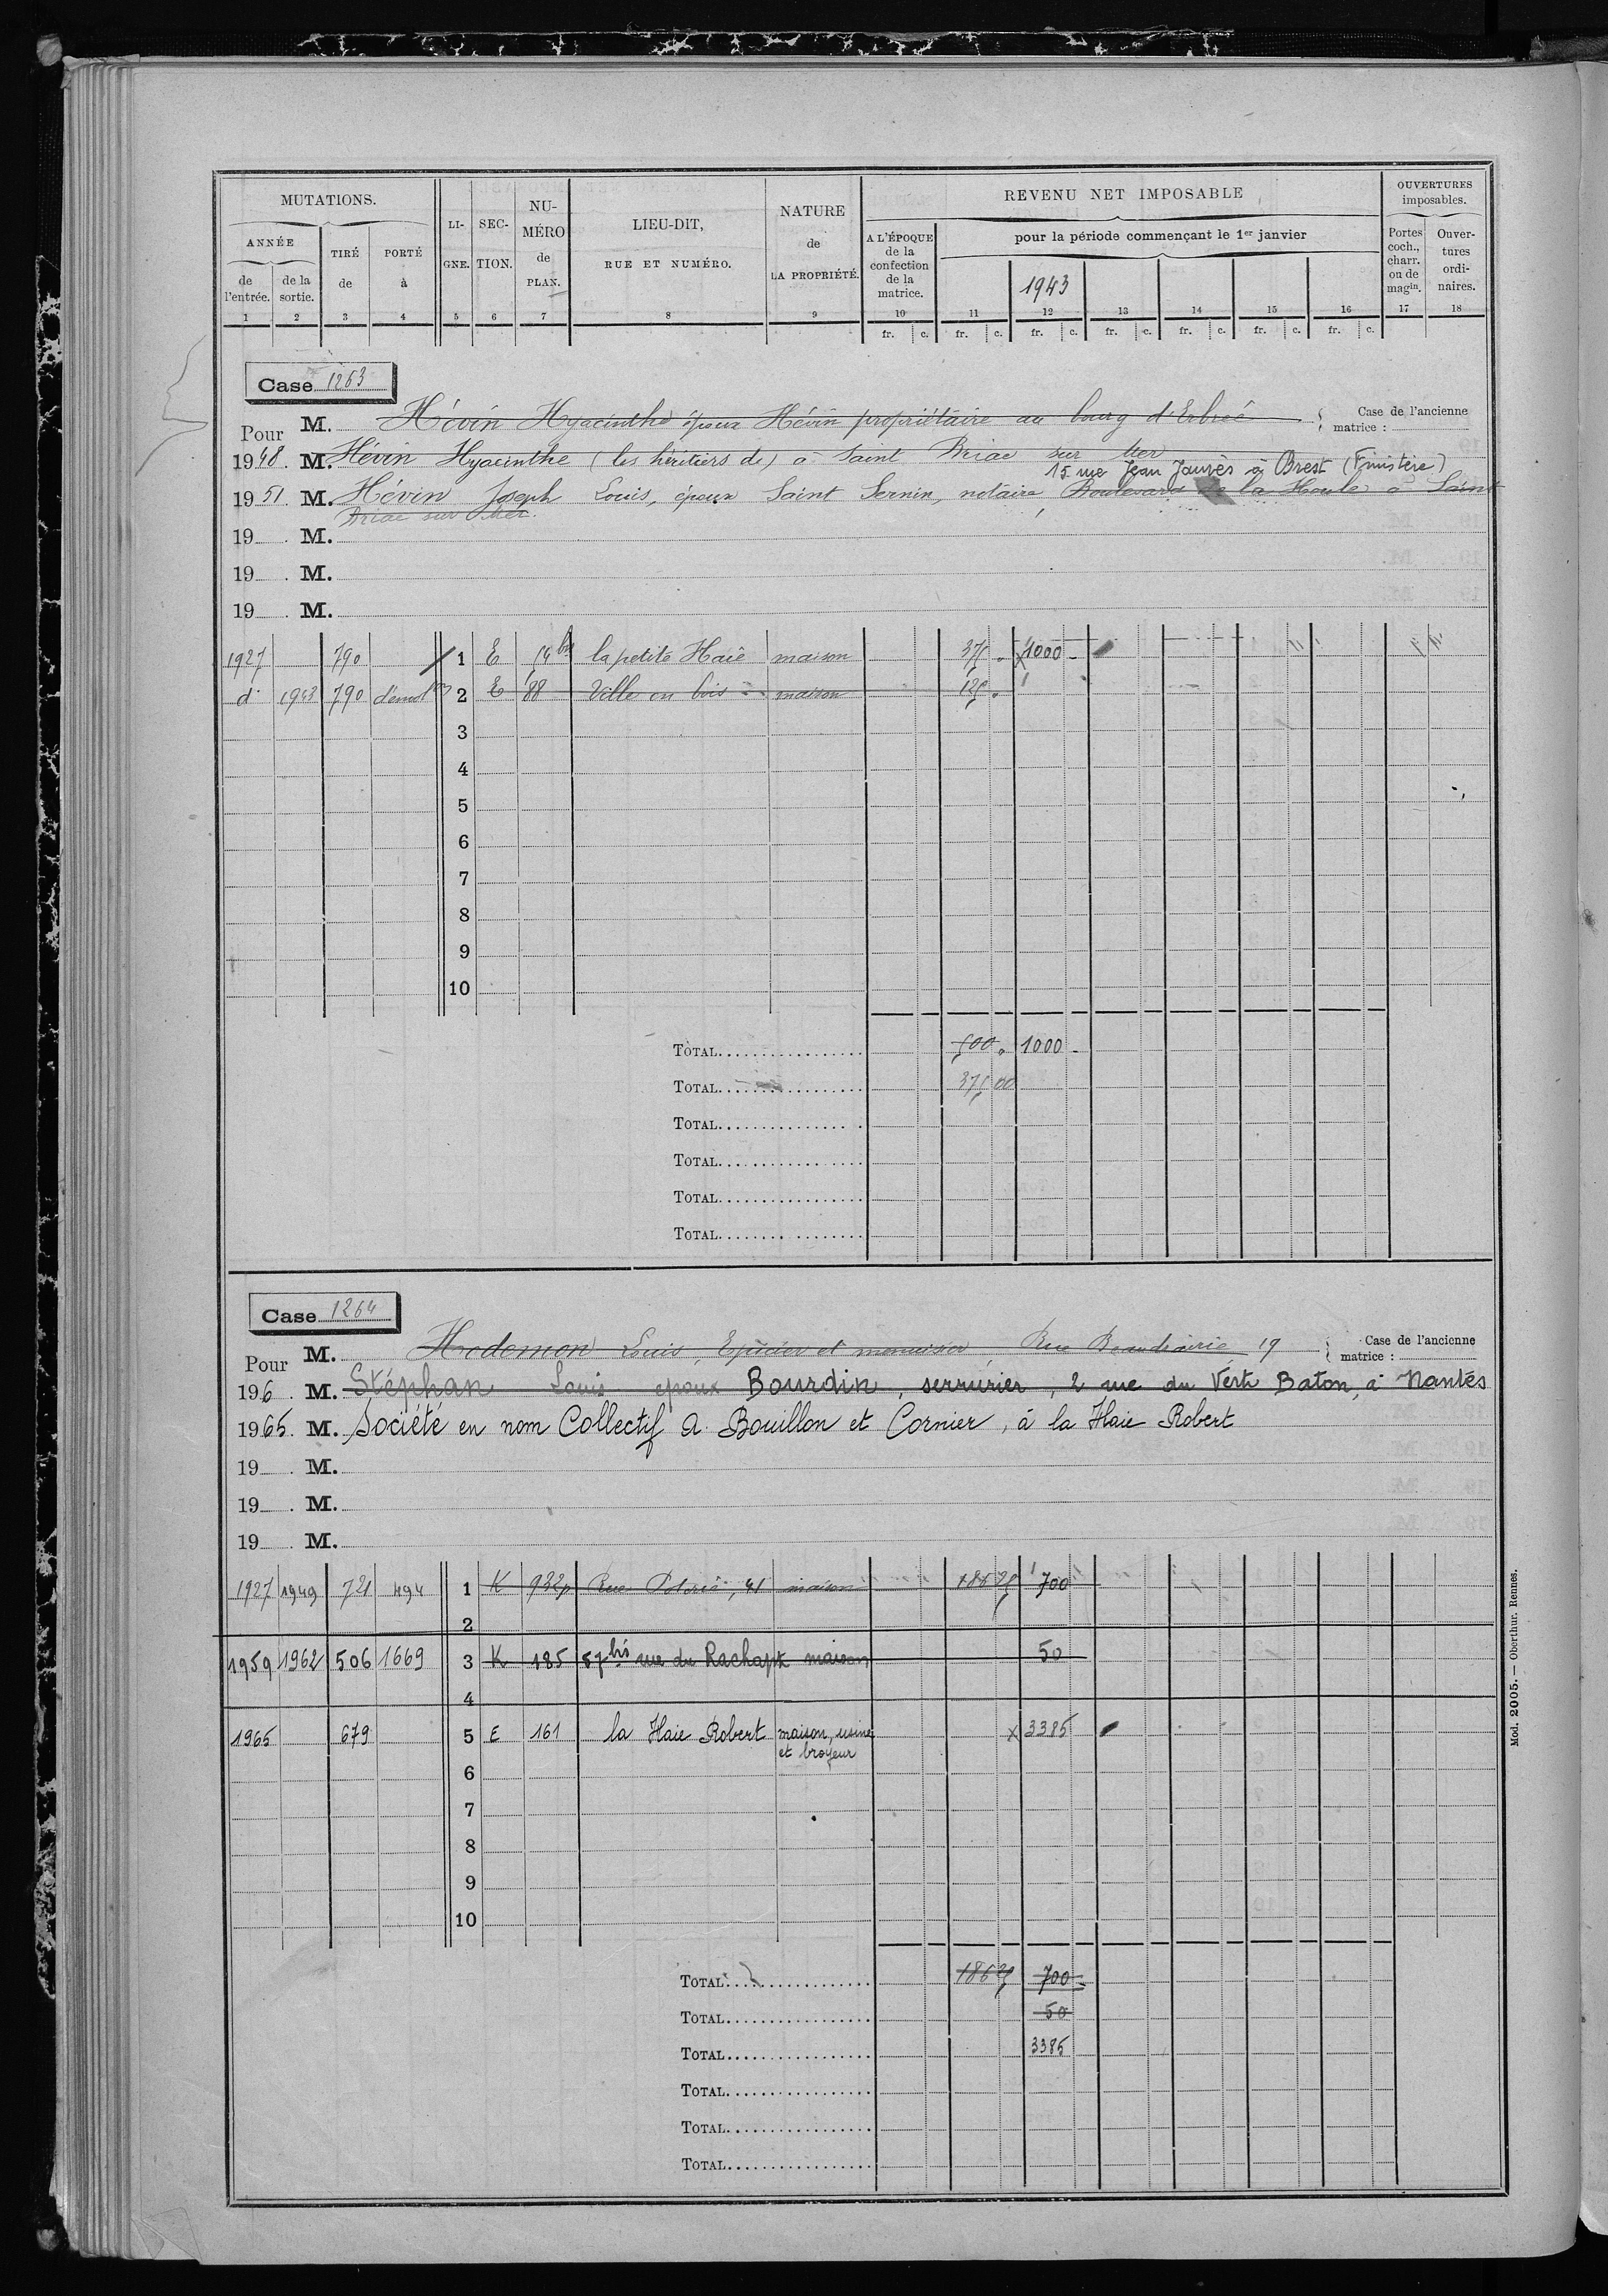 MUTATIONS.
ANNÉE
de l'entrée.
de la sortie.
TIRÉ de
PORTÉ à
LI-GNE.
SEC-TION.
NU-MÉRO de PLAN.
LIEU-DIT, RUE ET NUMÉRO.
NATURE de LA PROPRIÉTÉ.
REVENU NET IMPOSABLE
A L'ÉPOQUE de la confection de la matrice.
pour la période commençant le 1er janvier
1943
OUVERTURES imposables.
Portes coch., charr. ou de magin.
Ouver-tures ordi-naires.
1 2 3 4 5 6 7 8 9 10 11 12 13 14 15 16 17 18
fr. c. fr. c. fr. c. fr. c. fr. c. fr. c. fr. c.
Case 1263
Pour M. Hévin Hyacinthe époux Hévin propriétaire au bourg d'Erbreé
Case de l'ancienne matrice :
1948. M. Hévin Hyacinthe (les héritiers de) à Saint Briac sur Mer
15 rue Jean Jaurès à Brest (Finistère)
1951. M. Hévin Joseph Louis, époux Saint Sernin, notaire, Boulevard de la Houle à Saint
Briac sur Mer.
19 . M.
19 . M.
19 . M.
1927 790 1 E 54 bis la petite Haie maison 375 " 1000 -
d° 1943 790 démol on 2 E 88 Ville en bois maison 125 "
3
4
5
6
7
8
9
10
TOTAL 500 " 1000 -
TOTAL 375 00
TOTAL
TOTAL
TOTAL
TOTAL
Case 1264
Pour M. Louis, Epicier et menuisier, Rue Beaudrairie 19
Case de l'ancienne matrice :
196 . M. Stéphan Louis époux Bourdin, serrurier, 2 rue du Vert Baton, à Nantes
1965. M. Société en nom Collectif A. Bouillon et Cornier, à la Haie Robert
19 . M.
19 . M.
19 . M.
1927 1949 721 494 1 K 932p Rue Poterie, 41 maison 1862 5 700
2
1959 1962 506 1669 3 K 185 57 bis rue du Rachapt maison 50
4
1965 679 5 E 161 la Haie Robert maison, usine et broyeur x 3385
6
7
8
9
10
TOTAL 1862 5 700 -
TOTAL 50
TOTAL 3385
TOTAL
TOTAL
TOTAL
Mod. 2005. — Oberthur. Rennes.